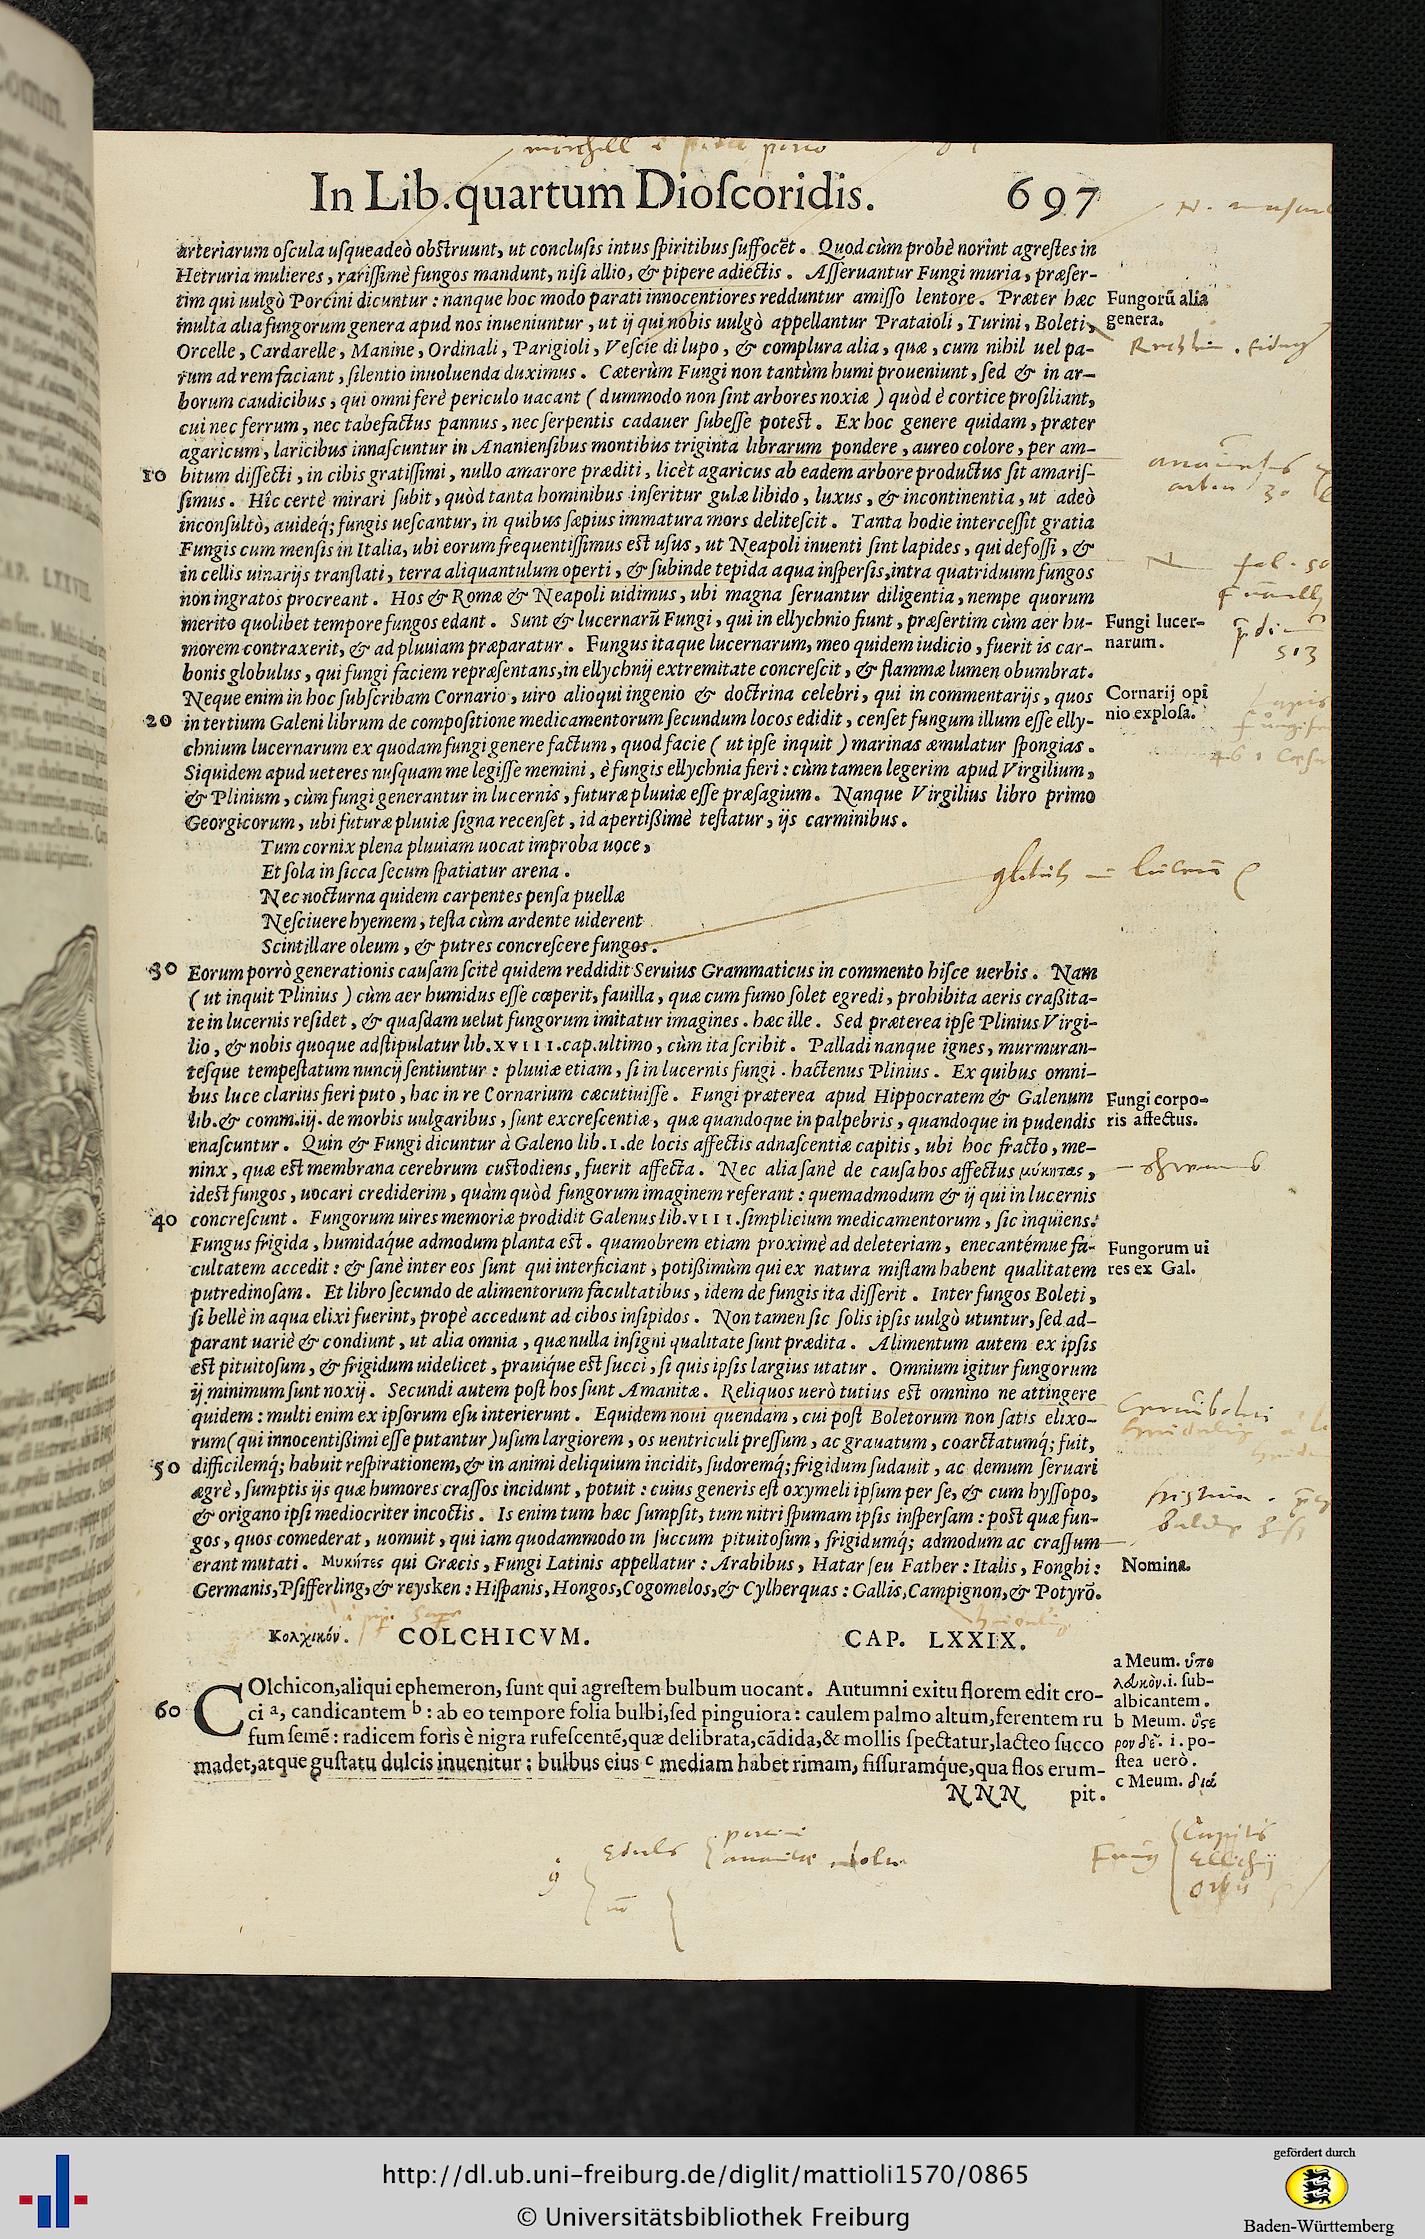 In Lib. quartum Dioſcoridis. 697
arteriarum oſcula uſqueadeò obſtruunt, ut concluſis intus ſpiritibus ſuffocẽt. Quod cùm probè norint agreſtes in
Hetruria mulieres, rariſſimè fungos mandunt, niſi allio, & pipere adiectis. Aſſeruantur Fungi muria, præſer-
tim qui uulgò Porcini dicuntur: nanque hoc modo parati innocentiores redduntur amiſſo lentore. Præter hæc
Fungorũ alia
multa alia fungorum genera apud nos inueniuntur, ut ij qui nobis uulgò appellantur Prataioli, Turini, Boleti,
genera.
Orcelle, Cardarelle, Manine, Ordinali, Parigioli, Veſcie di lupo, & complura alia, quæ, cum nihil uel pa-
rum ad rem faciant, ſilentio inuoluenda duximus. Cæterùm Fungi non tantùm humi proueniunt, ſed & in ar-
borum caudicibus, qui omni ferè periculo uacant (dummodo non ſint arbores noxiæ) quòd è cortice proſiliant,
cui nec ferrum, nec tabefactus pannus, nec ſerpentis cadauer ſubeſſe poteſt. Ex hoc genere quidam, præter
agaricum, laricibus innaſcuntur in Ananienſibus montibus triginta librarum pondere, aureo colore, per am-
10 bitum diſſecti, in cibis gratiſſimi, nullo amarore præditi, licèt agaricus ab eadem arbore productus ſit amariſ-
ſimus. Hîc certè mirari ſubit, quòd tanta hominibus inſeritur gulæ libido, luxus, & incontinentia, ut adeò
inconſultò, auideq́; fungis ueſcantur, in quibus ſæpius immatura mors deliteſcit. Tanta hodie interceſſit gratia
Fungis cum menſis in Italia, ubi eorum frequentiſſimus eſt uſus, ut Neapoli inuenti ſint lapides, qui defoſſi, &
in cellis uinarijs tranſlati, terra aliquantulum operti, & ſubinde tepida aqua inſperſis, intra quatriduum fungos
non ingratos procreant. Hos & Romæ & Neapoli uidimus, ubi magna ſeruantur diligentia, nempe quorum
merito quolibet tempore fungos edant. Sunt & lucernarũ Fungi, qui in ellychnio fiunt, præſertim cùm aer hu-
Fungi lucer-
morem contraxerit, & ad pluuiam præparatur. Fungus itaque lucernarum, meo quidem iudicio, fuerit is car-
narum.
bonis globulus, qui fungi faciem repræſentans, in ellychnij extremitate concreſcit, & flammæ lumen obumbrat.
Neque enim in hoc ſubſcribam Cornario, uiro alioqui ingenio & doctrina celebri, qui in commentarijs, quos
Cornarij opi
20 in tertium Galeni librum de compoſitione medicamentorum ſecundum locos edidit, cenſet fungum illum eſſe elly-
nio exploſa.
chnium lucernarum ex quodam fungi genere factum, quod facie (ut ipſe inquit) marinas æmulatur ſpongias.
Siquidem apud ueteres nuſquam me legiſſe memini, è fungis ellychnia fieri: cùm tamen legerim apud Virgilium,
& Plinium, cùm fungi generantur in lucernis, futuræ pluuiæ eſſe præſagium. Nanque Virgilius libro primo
Georgicorum, ubi futuræ pluuiæ ſigna recenſet, id apertißimè teſtatur, ijs carminibus.
Tum cornix plena pluuiam uocat improba uoce,
Et ſola in ſicca ſecum ſpatiatur arena.
Nec nocturna quidem carpentes penſa puellæ
Neſciuere hyemem, teſta cùm ardente uiderent
Scintillare oleum, & putres concreſcere fungos.
30 Eorum porrò generationis cauſam ſcitè quidem reddidit Seruius Grammaticus in commento hiſce uerbis. Nam
(ut inquit Plinius) cùm aer humidus eſſe cœperit, fauilla, quæ cum fumo ſolet egredi, prohibita aeris craßita-
te in lucernis reſidet, & quaſdam uelut fungorum imitatur imagines. hæc ille. Sed præterea ipſe Plinius Virgi-
lio, & nobis quoque adſtipulatur lib. XVIII. cap. ultimo, cùm ita ſcribit. Palladi nanque ignes, murmuran-
teſque tempeſtatum nuncij ſentiuntur: pluuiæ etiam, ſi in lucernis fungi. hactenus Plinius. Ex quibus omni-
bus luce clarius fieri puto, hac in re Cornarium cæcutiuiſſe. Fungi præterea apud Hippocratem & Galenum
Fungi corpo-
lib. & comm. iij. de morbis uulgaribus, ſunt excreſcentiæ, quæ quandoque in palpebris, quandoque in pudendis
ris affectus.
enaſcuntur. Quin & Fungi dicuntur à Galeno lib. I. de locis affectis adnaſcentiæ capitis, ubi hoc fracto, me-
ninx, quæ eſt membrana cerebrum cuſtodiens, fuerit affecta. Nec alia ſanè de cauſa hos affectus μύκητας,
ideſt fungos, uocari crediderim, quàm quòd fungorum imaginem referant: quemadmodum & ij qui in lucernis
40 concreſcunt. Fungorum uires memoriæ prodidit Galenus lib. VIII. ſimplicium medicamentorum, ſic inquiens.
Fungus frigida, humidaq́ue admodum planta eſt. quamobrem etiam proximè ad deleteriam, enecantémue fa-
Fungorum ui
cultatem accedit: & ſanè inter eos ſunt qui interficiant, potißimùm qui ex natura miſtam habent qualitatem
res ex Gal.
putredinoſam. Et libro ſecundo de alimentorum facultatibus, idem de fungis ita diſſerit. Inter fungos Boleti,
ſi bellè in aqua elixi fuerint, propè accedunt ad cibos inſipidos. Non tamen ſic ſolis ipſis uulgò utuntur, ſed ad-
parant uariè & condiunt, ut alia omnia, quæ nulla inſigni qualitate ſunt prædita. Alimentum autem ex ipſis
eſt pituitoſum, & frigidum uidelicet, prauiq́ue eſt ſucci, ſi quis ipſis largius utatur. Omnium igitur fungorum
ij minimum ſunt noxij. Secundi autem poſt hos ſunt Amanitæ. Reliquos uerò tutius eſt omnino ne attingere
quidem: multi enim ex ipſorum eſu interierunt. Equidem noui quendam, cui poſt Boletorum non ſatis elixo-
rum (qui innocentißimi eſſe putantur) uſum largiorem, os uentriculi preſſum, ac grauatum, coarctatumq́; fuit,
50 difficilemq́; habuit reſpirationem, & in animi deliquium incidit, ſudoremq́; frigidum ſudauit, ac demum ſeruari
ægrè, ſumptis ijs quæ humores craſſos incidunt, potuit: cuius generis eſt oxymeli ipſum per ſe, & cum hyſſopo,
& origano ipſi mediocriter incoctis. Is enim tum hæc ſumpſit, tum nitri ſpumam ipſis inſperſam: poſt quæ fun-
gos, quos comederat, uomuit, qui iam quodammodo in ſuccum pituitoſum, frigidumq́; admodum ac craſſum
erant mutati. Μυκῆτες qui Græcis, Fungi Latinis appellatur: Arabibus, Hatar ſeu Father: Italis, Fonghi:
Nomina.
Germanis, Pſifferling, & reysken: Hiſpanis, Hongos, Cogomelos, & Cylherquas: Gallis, Campignon, & Potyrõ.
Κολχικόν. COLCHICVM. CAP. LXXIX.
Colchicon, aliqui ephemeron, ſunt qui agreſtem bulbum uocant. Autumni exitu florem edit cro-
60 ci a, candicantem b: ab eo tempore folia bulbi, ſed pinguiora: caulem palmo altum, ferentem ru
fum ſemẽ: radicem foris è nigra rufeſcentẽ, quæ delibrata, cãdida, & mollis ſpectatur, lacteo ſucco
madet, atque guſtatu dulcis inuenitur: bulbus eius c mediam habet rimam, fiſſuramq́ue, qua flos erum-
NNN pit.
a Meum. ὑπο
λευκὸν. i. ſub-
albicantem.
b Meum. ὕςε
ρον δὲ. i. po-
ſtea uerò.
c Meum. διὰ
Capitis
Ellichnij
http://dl.ub.uni-freiburg.de/diglit/mattioli1570/0865
© Universitätsbibliothek Freiburg
gefördert durch
Baden-Württemberg